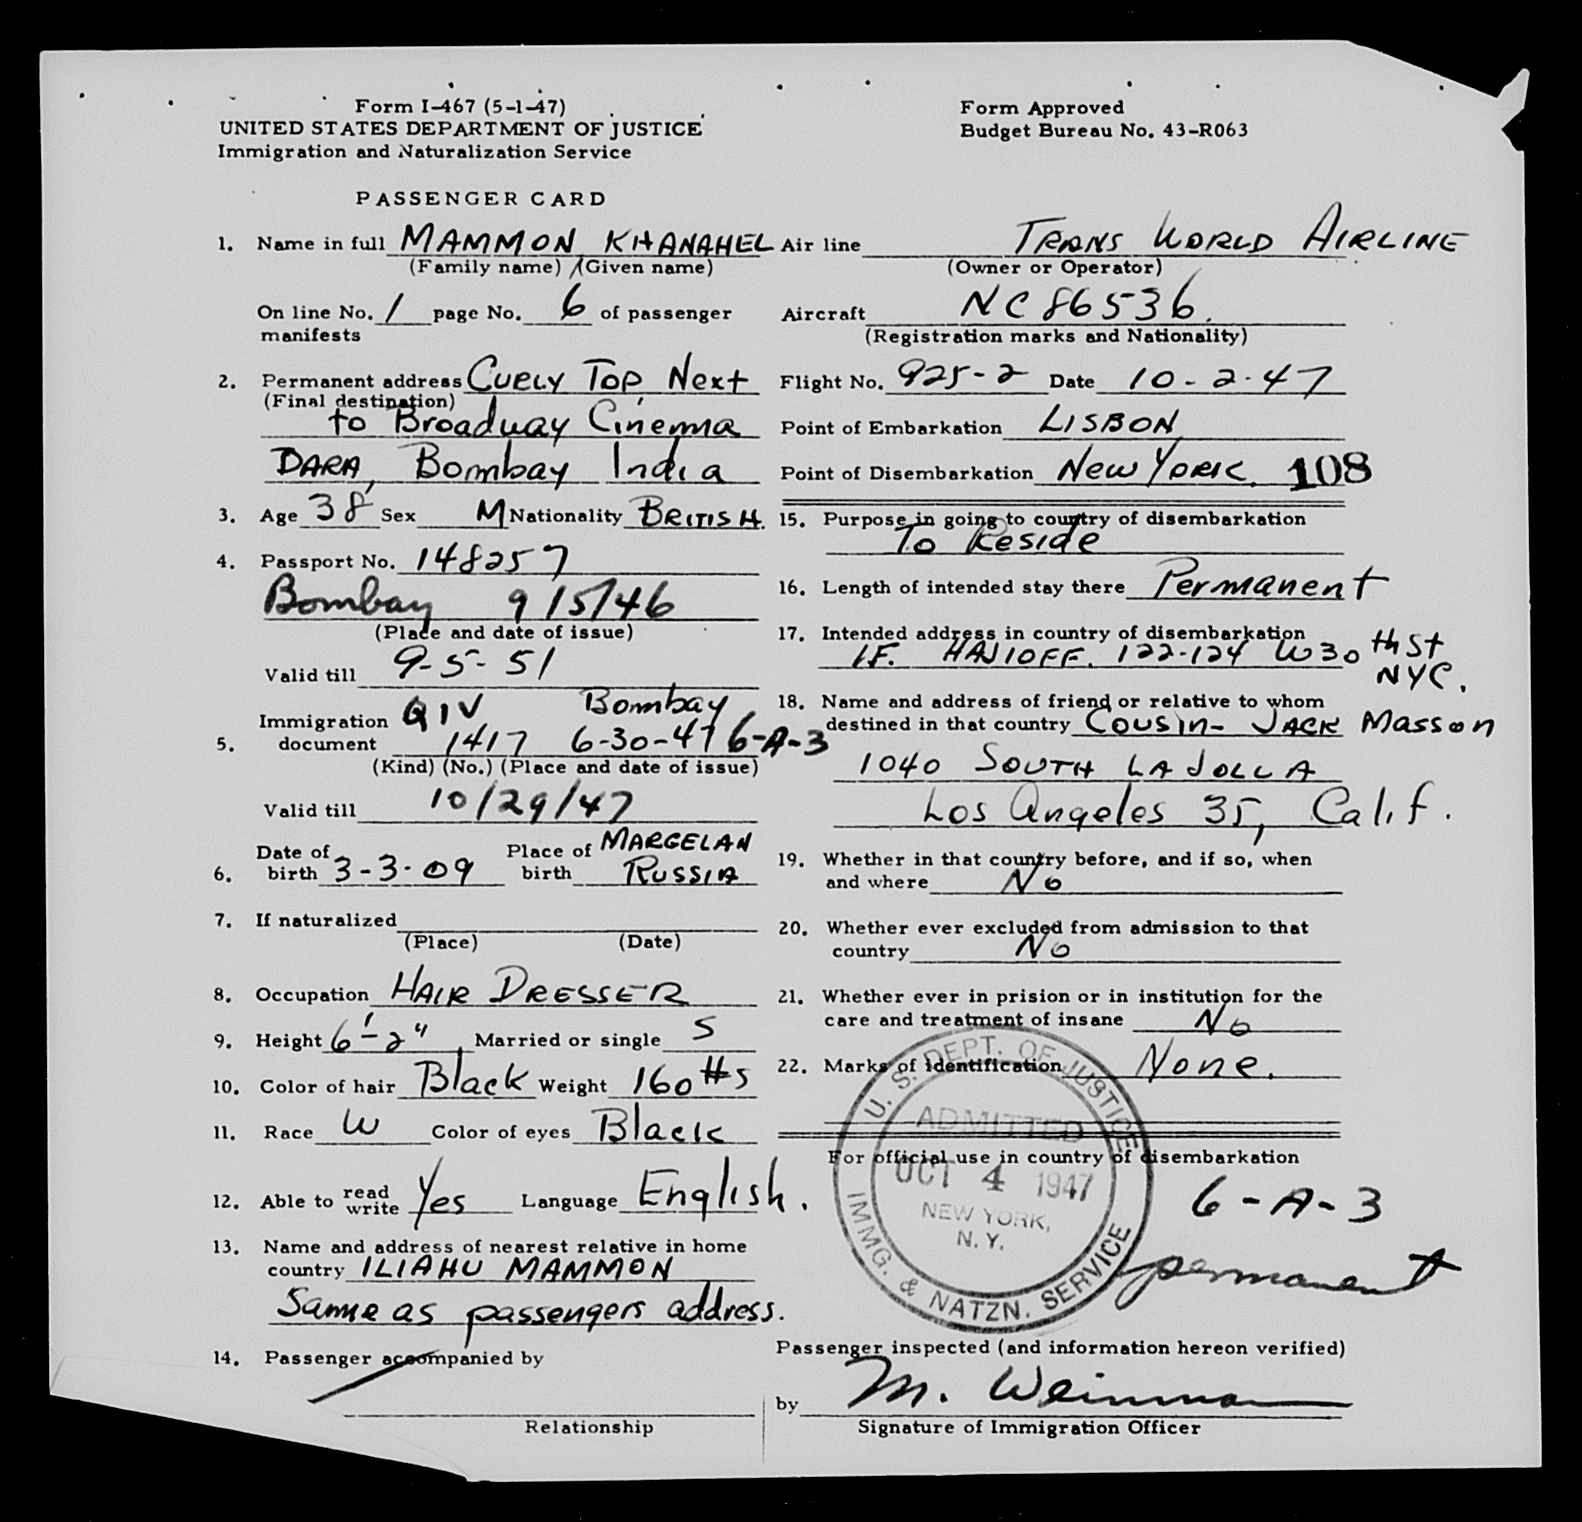 Form I-467 (5-1-47)
UNITED STATES DEPARTMENT OF JUSTICE
Immigration and Naturalization Service
Form Approved
Budget Bureau No. 43-R063
PASSENGER CARD
1. Name in full MAMMON KHANAHEL
(Family name) (Given name)
On line No. 1 page No. 6 of passenger
manifests
2. Permanent address CURLY TOP Next
(Final destination)
to Broadway Cinema
DARA, Bombay India
3. Age 38 Sex M Nationality BRITISH.
4. Passport No. 148257
Bombay 9/5/46
(Place and date of issue)
Valid till 9-5-51
Immigration QIV Bombay
5. document 1417 6-30-47 6-A-3
(Kind) (No.) (Place and date of issue)
Valid till 10/29/47
Date of Place of MARGELAN
6. birth 3-3-09 birth RUSSIA
7. If naturalized
(Place) (Date)
8. Occupation HAIR DRESSER
9. Height 6'-2" Married or single S
10. Color of hair Black Weight 160 #s
11. Race W Color of eyes Black
12. Able to read write Yes Language English.
13. Name and address of nearest relative in home
country ILIAHU MAMMON
Same as passengers address.
14. Passenger accompanied by
Relationship
Air line TRANS WORLD AIRLINE
(Owner or Operator)
Aircraft NC86536.
(Registration marks and Nationality)
Flight No. 925-2 Date 10-2-47
Point of Embarkation LISBON
Point of Disembarkation NEW YORK. 108
15. Purpose in going to country of disembarkation
To Reside
16. Length of intended stay there Permanent
17. Intended address in country of disembarkation
HAJIOFF. 122-124 W 30 th St
NYC.
18. Name and address of friend or relative to whom
destined in that country COUSIN- JACK Masson
1040 SOUTH LA JOLLA
Los Angeles 35, Calif.
19. Whether in that country before, and if so, when
and where No
20. Whether ever excluded from admission to that
country No
21. Whether ever in prision or in institution for the
care and treatment of insane No
22. Marks of identification None.
For official use in country of disembarkation
U. S. DEPT. OF JUSTICE
ADMITTED
OCT 4 1947
NEW YORK,
N. Y.
IMMG. & NATZN. SERVICE
6-A-3
permanent
Passenger inspected (and information hereon verified)
by M. Weinman
Signature of Immigration Officer